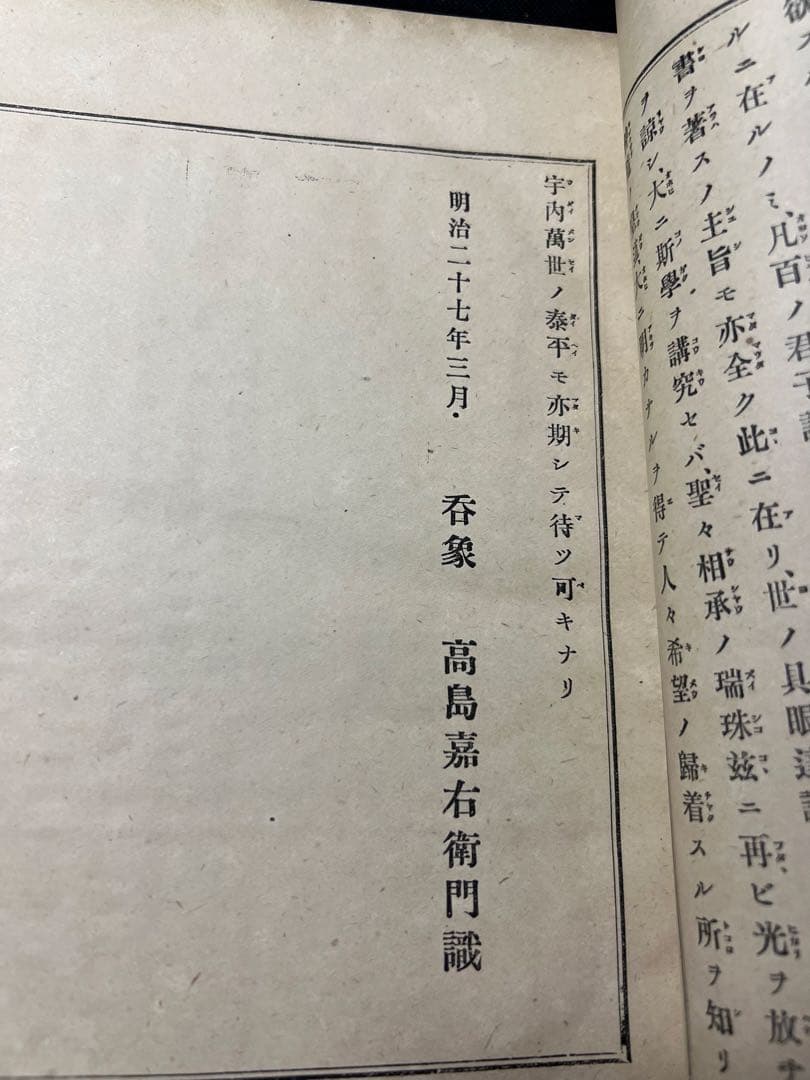 欲ス
ルニ在ルノミ、凡百ノ君子
書ヲ著スノ主旨モ亦全ク此ニ在リ、世ノ具眼達識
ヲ諒シ、大ニ斯學ヲ講究セバ、聖々相承ノ瑞珠茲ニ再ビ光ヲ放チ
ニ明カナルヲ得テ人々希望ノ歸着スル所ヲ知リ
宇内萬世ノ泰平モ亦期シテ待ツ可キナリ
明治二十七年三月. 呑象 高島嘉右衛門識